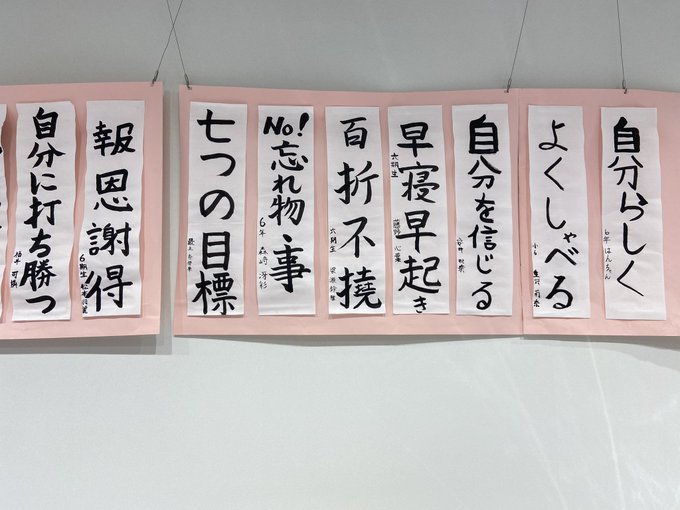 自分らしく
6年 はんちゃん
よくしゃべる
自分を信じる
早寝早起き
六期生
百折不撓
六期生
No!忘れ物・事
6年
七つの目標
報恩謝得
6期生
自分に打ち勝つ